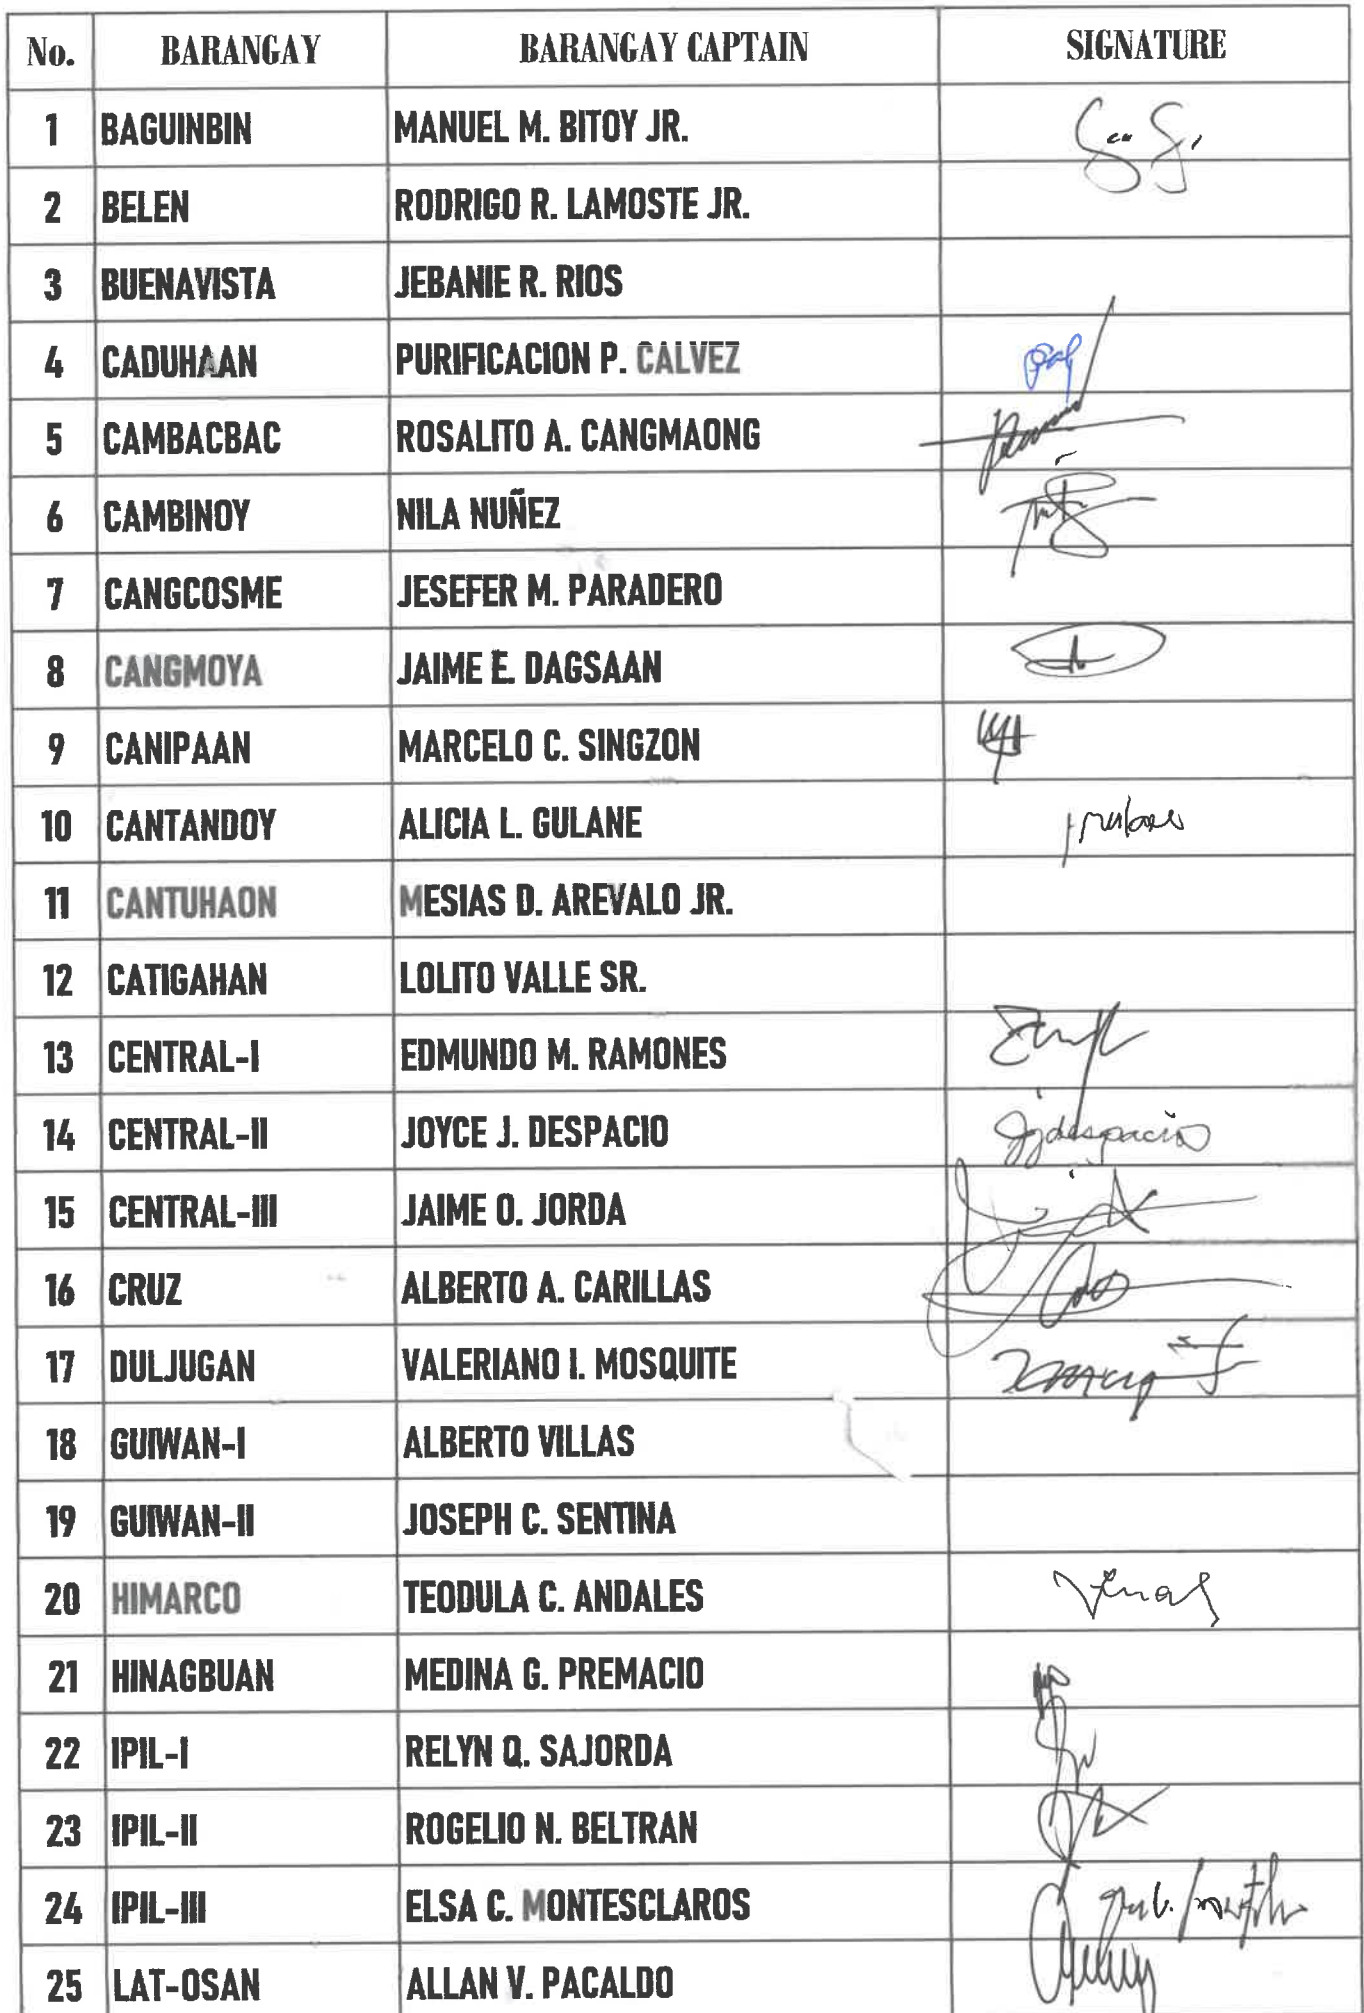 No. BARANGAY BARANGAY CAPTAIN SIGNATURE
1 BAGUINBIN MANUEL M. BITOY JR.
2 BELEN RODRIGO R. LAMOSTE JR.
3 BUENAVISTA JEBANIE R. RIOS
4 CADUHAAN PURIFICACION P. CALVEZ
5 CAMBACBAC ROSALITO A. CANGMAONG
6 CAMBINOY NILA NUÑEZ
7 CANGCOSME JESEFER M. PARADERO
8 CANGMOYA JAIME E. DAGSAAN
9 CANIPAAN MARCELO C. SINGZON
10 CANTANDOY ALICIA L. GULANE
11 CANTUHAON MESIAS D. AREVALO JR.
12 CATIGAHAN LOLITO VALLE SR.
13 CENTRAL-I EDMUNDO M. RAMONES
14 CENTRAL-II JOYCE J. DESPACIO jjdespacio
15 CENTRAL-III JAIME O. JORDA
16 CRUZ ALBERTO A. CARILLAS
17 DULJUGAN VALERIANO I. MOSQUITE
18 GUIWAN-I ALBERTO VILLAS
19 GUIWAN-II JOSEPH C. SENTINA
20 HIMARCO TEODULA C. ANDALES
21 HINAGBUAN MEDINA G. PREMACIO
22 IPIL-I RELYN Q. SAJORDA
23 IPIL-II ROGELIO N. BELTRAN
24 IPIL-III ELSA C. MONTESCLAROS
25 LAT-OSAN ALLAN V. PACALDO